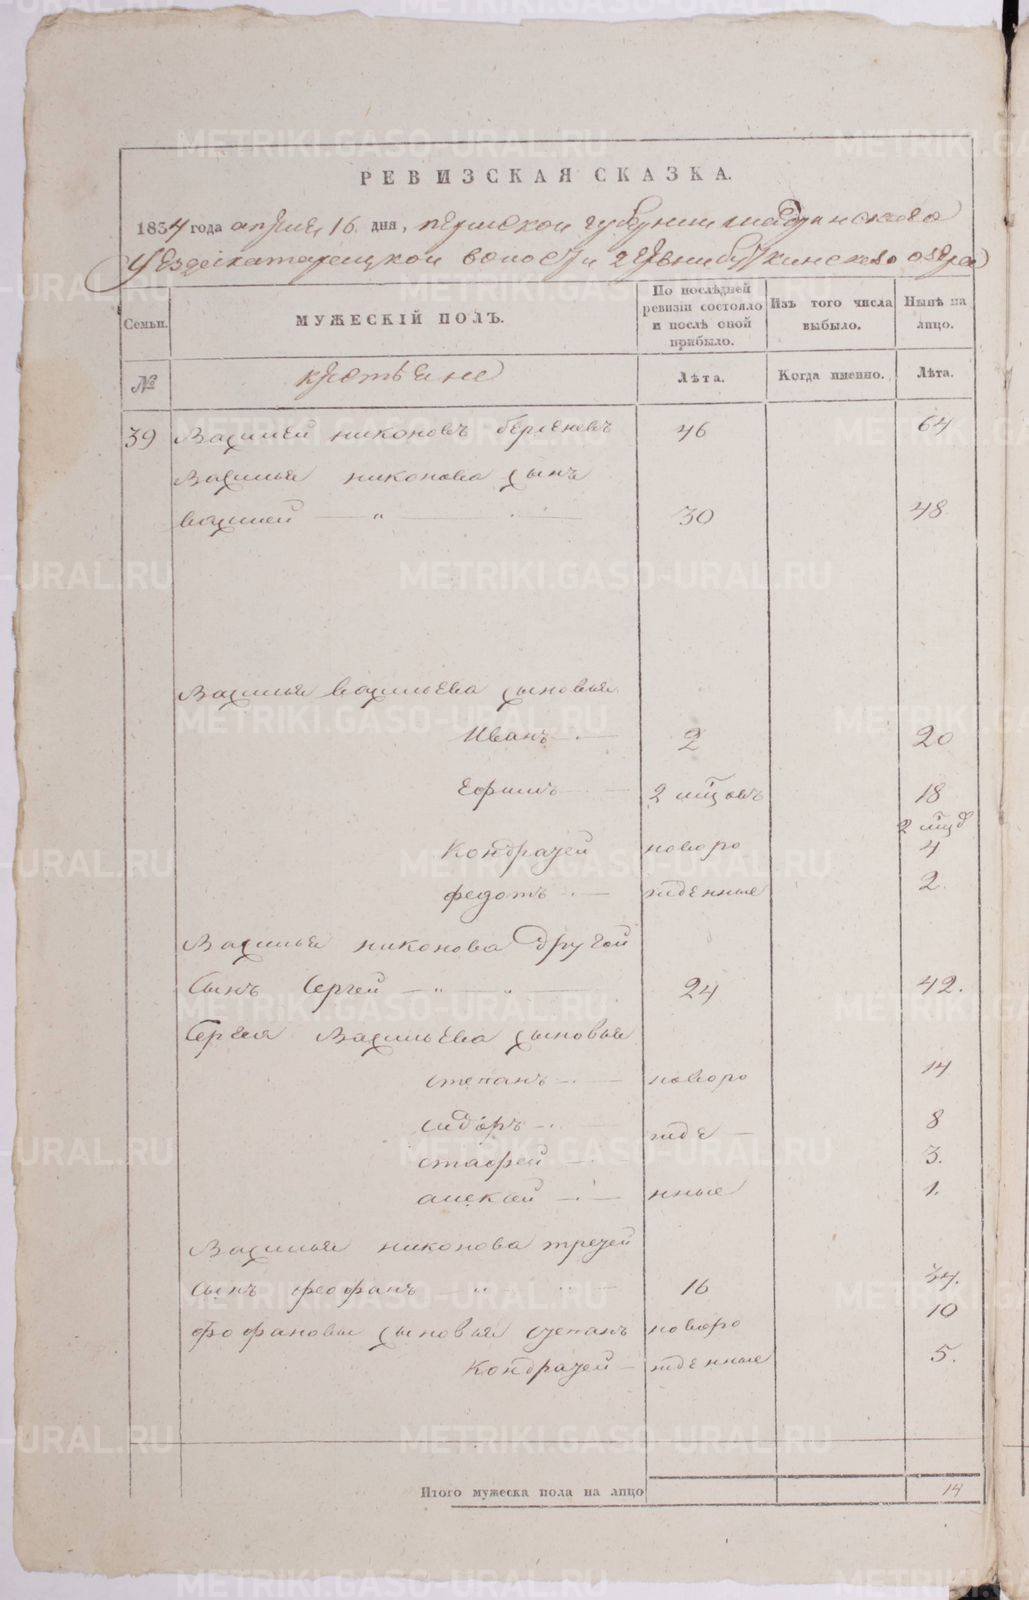 РЕВИЗСКАЯ СКАЗКА.
1854 года апреля 16 дня, пермской губернии шадринского
уезда катарецкой волости деревни буткинского озера
Семьи. МУЖЕСКІЙ ПОЛЪ. По послѣдней ревизіи состояло и послѣ оной прибыло. Изъ того числа выбыло. Нынѣ на лицо.
№ крестьяне Лѣта. Когда именно. Лѣта.
39 Василей никоновъ берсеневъ 46 64
Василья никонова сынъ
василей 30 48
Василья васильева сыновья
Иванъ 2 20
Ефимъ 2 мцовъ 18
2 мцо
Кондратей новоро 4
федотъ жденные 2.
Василья никонова другой
сынъ Сергей 24 42.
Сергея Васильева сыновья
степанъ новоро 14
сидоръ жде 8
стафей 3.
алексей нные 1.
Василья никонова третей
сынъ феофанъ 16 34.
фофановы сыновья степанъ новоро 10
Кондратей жденные 5.
Итого мужеска пола на лицо 14
METRIKI.GASO-URAL.RU